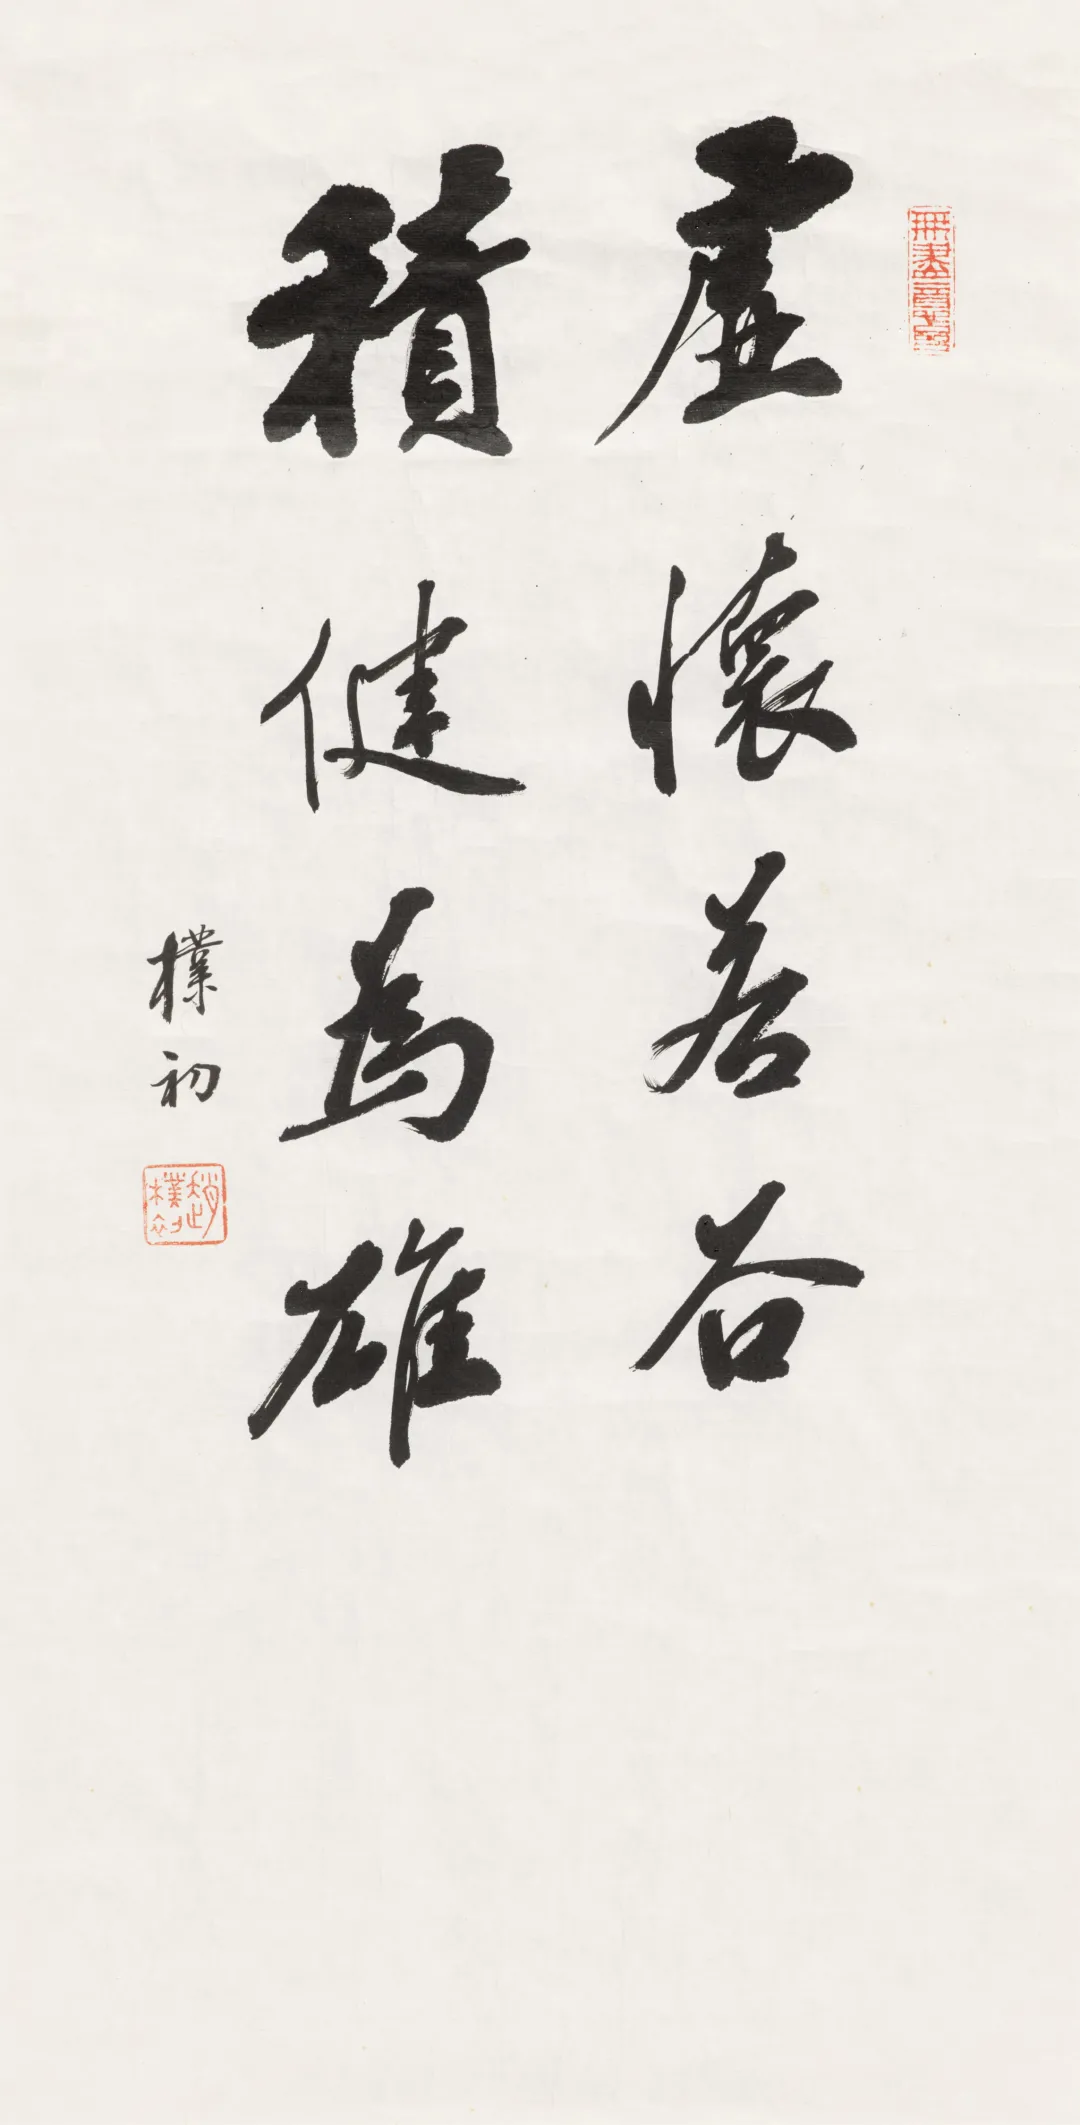 虛懷若谷
積健為雄
樸初
無盡意齋
趙樸初